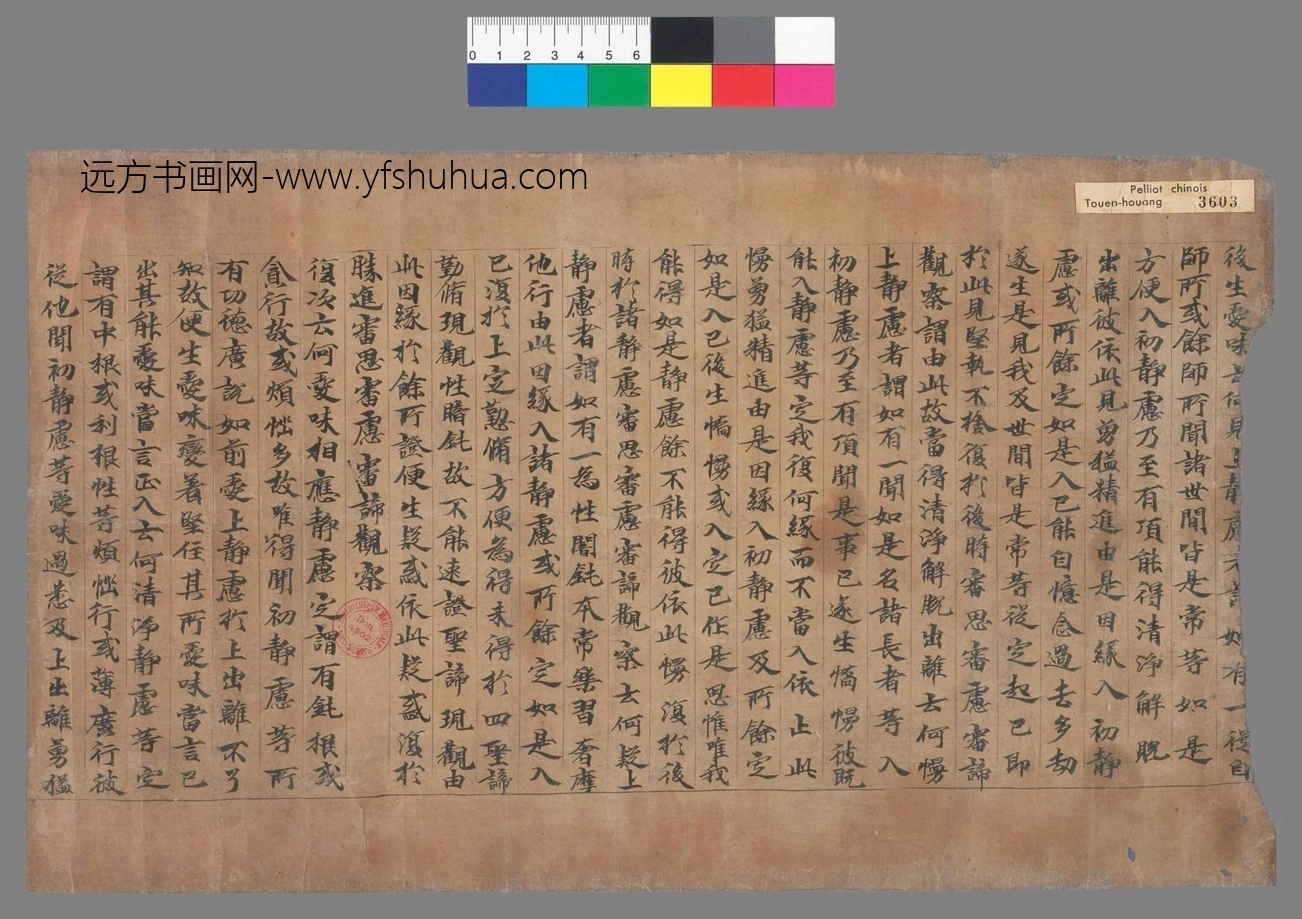 远方书画网-www.yfshuhua.com
0 1 2 3 4 5 6
Pelliot chinois
Touen-houang 3603
後生愛味云何見上靜慮者謂如有一從自
師所或餘師所聞諸世間皆是常等如是
方便入初靜慮乃至有頂能得清淨解脫
出離彼依此見勇猛精進由是因緣入初靜
慮或所餘定如是入已能自憶念過去多劫
遂生是見我及世間皆是常等從定起已即
於此見堅執不捨復於後時審思審慮審諦
觀察謂由此故當得清淨解脫出離云何慢
上靜慮者謂如有一聞如是名諸長者等入
初靜慮乃至有頂聞是事已遂生憍慢彼既
能入靜慮等定我復何緣而不當入依止此
慢勇猛精進由是因緣入初靜慮及所餘定
如是入已後生憍慢或入定已作是思惟唯我
能得如是靜慮餘不能得彼依此慢復於後
時於諸靜慮審思審慮審諦觀察云何疑上
靜慮者謂如有一為性闇鈍本常樂習奢摩
他行由此因緣入諸靜慮或所餘定如是入
已復於上定勤脩方便為得未得於四聖諦
勤脩現觀性暗鈍故不能速證聖諦現觀由
此因緣於餘所證便生疑惑依此疑惑復於
勝進審思審慮審諦觀察
復次云何愛味相應靜慮定謂有鈍根或
貪行故或煩惱多故唯得聞初靜慮等所
有功德廣說如前愛上靜慮於上出離不了
知故便生愛味戀著堅住其所愛味當言已
出其能愛味當言正入云何清淨靜慮等定
謂有中根或利根性等煩惱行或薄塵行彼
從他聞初靜慮等愛味過患及上出離勇猛
Don
4502